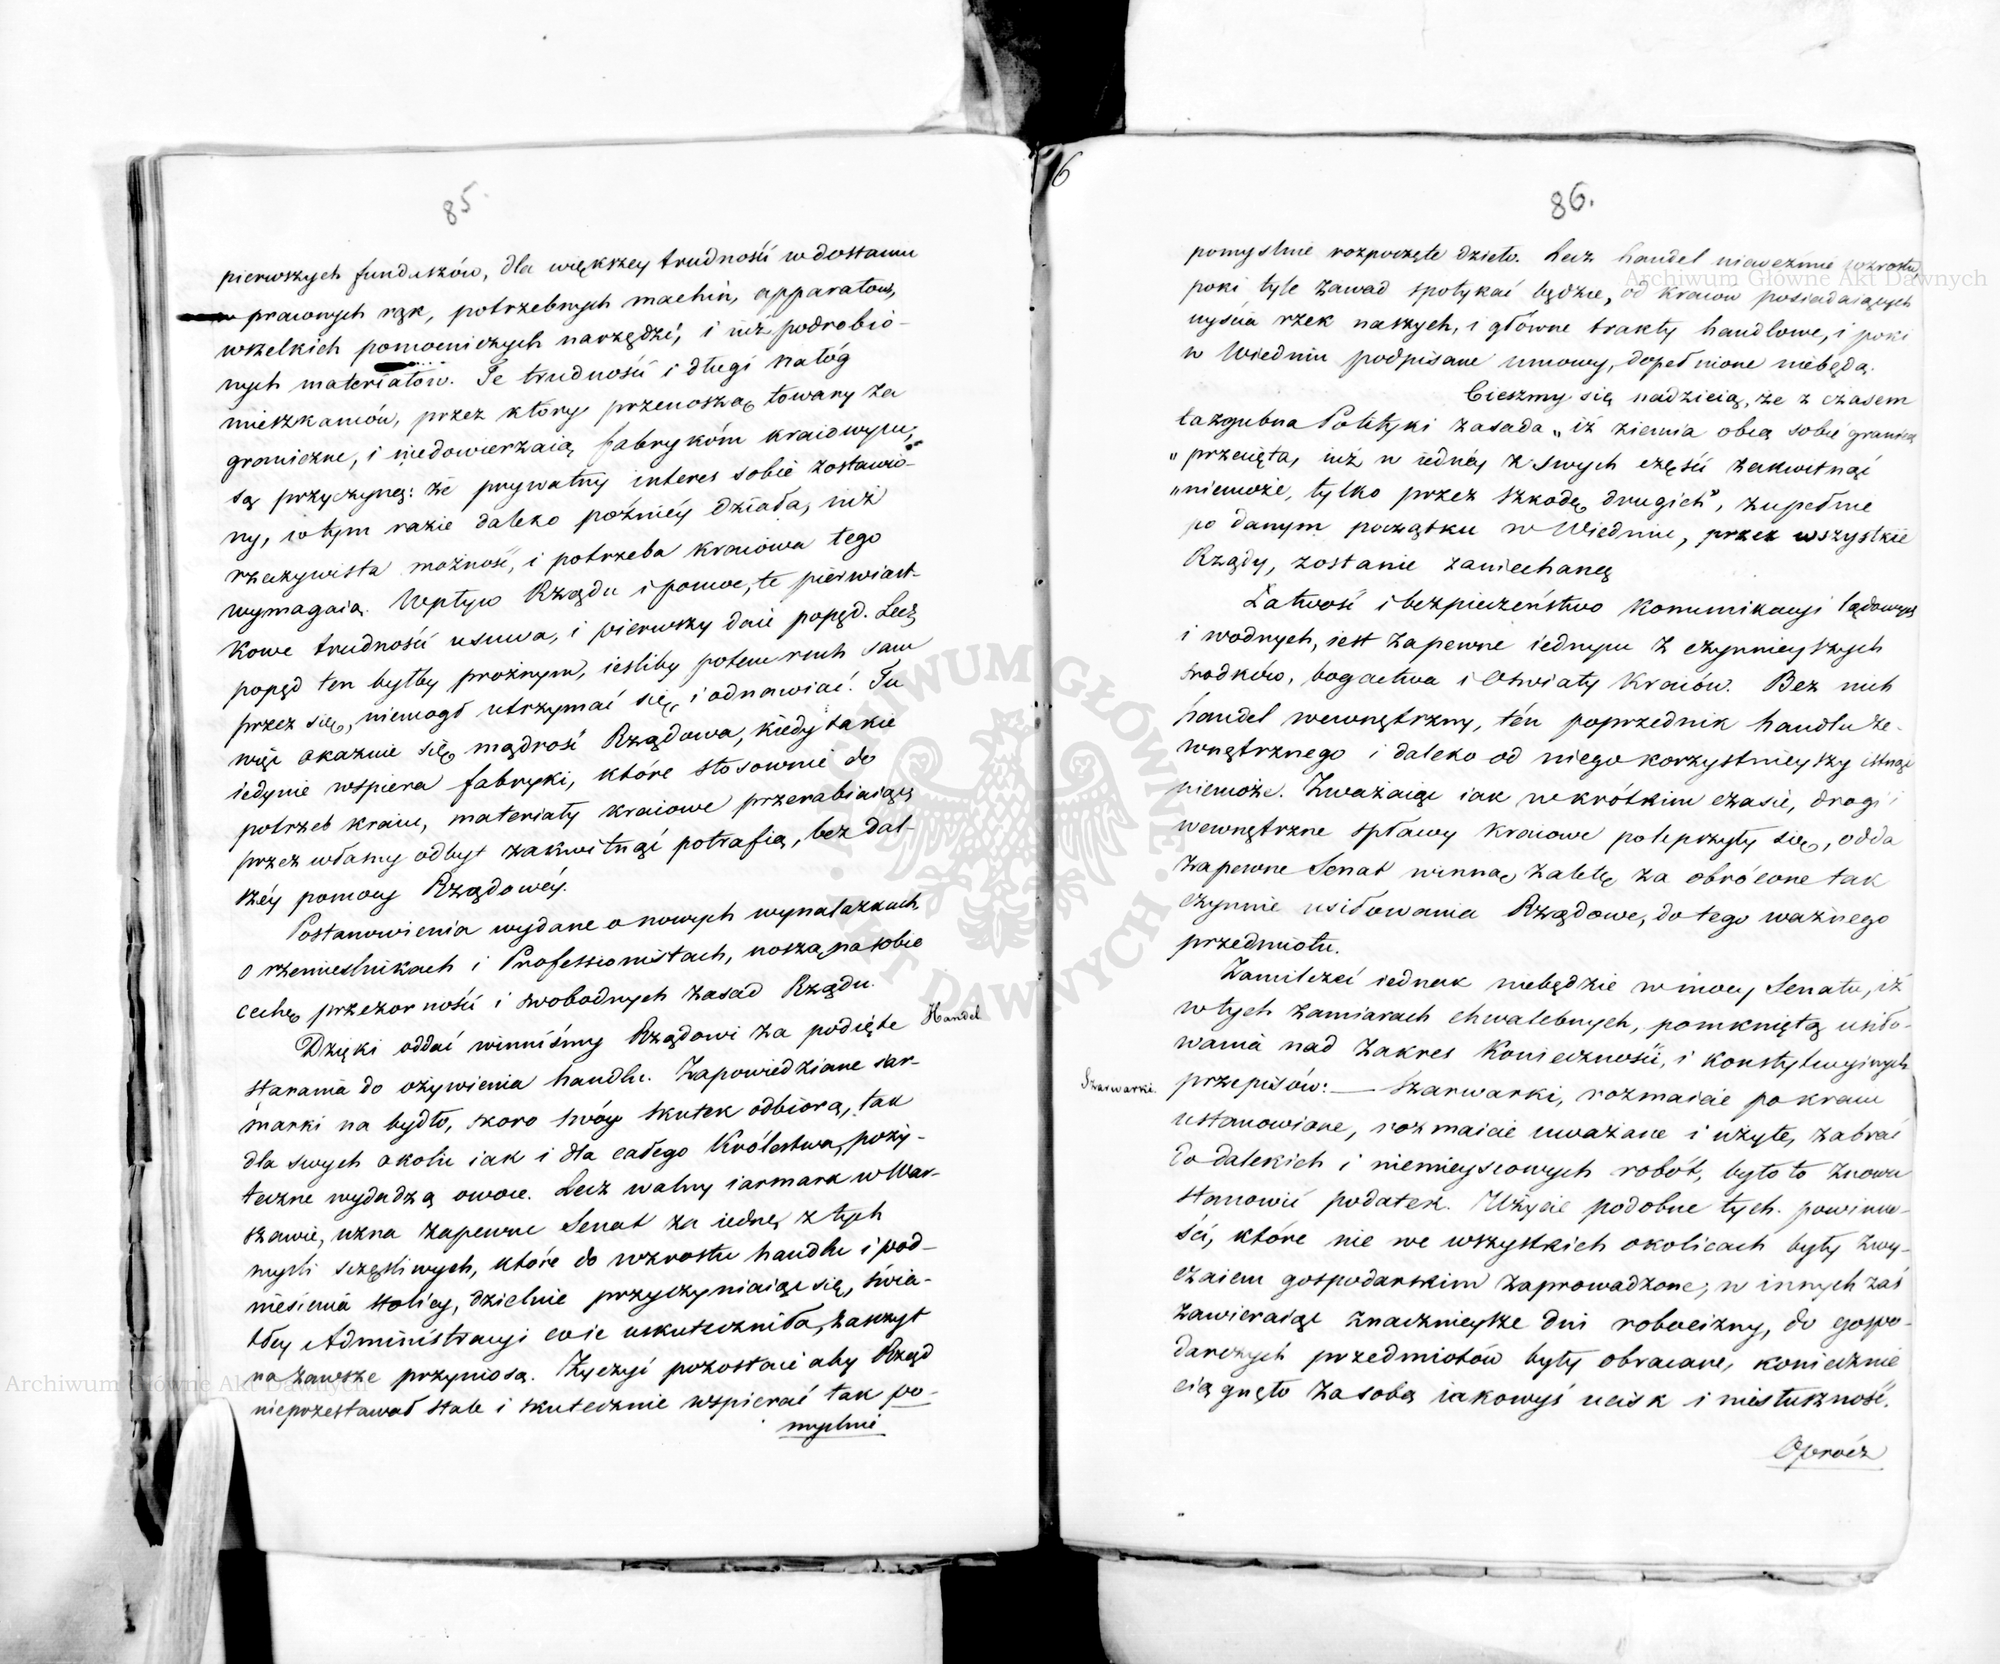 85.
pierwszych funduszów, dla większey trudności w dostaniu
prawnych rąk, potrzebnych machin, apparatów,
wszelkich pomocniczych narzędzi, i iuż podrobio-
nych materiałów. Te trudności i długi nałóg
mieszkańców, przez który przenoszą towary za
graniczne, i niedowierzaią fabrykóm kraiowym,
są przyczyną: że prywatny interes sobie zostawio-
ny, w tym razie daleko poźniéy działa, niż
rzeczywista możność, i potrzeba kraiowa tego
wymagaią. Wpływ Rządu i pomoc, te pierwiast-
kowe trudności usuwa, i pierwszy daie popęd. Lecz
popęd ten byłby prożnym, iesliby potem ruch sam
przez się, niemogł utrzymać się, i odnawiać. Tu
więc okazuie się mądrość Rządowa, kiedy takie
iedynie wspiera fabryki, które stosownie do
potrzeb kraiu, materiały kraiowe przerabiaiąc,
przez własny odbyt zakwitnąć potrafią, bez dal-
széy pomocy Rządowéy.
Postanowienia wydane o nowych wynalazkach,
o rzemieslnikach i Professionistach, noszą na sobie
cechę przezorności i swobodnych zasad Rządu.
Dzięki oddać winniśmy Rządowi za podięte
Handel
starania do ożywienia handlu. Zapowiedziane iar-
marki na bydło, skoro swóy skutek odbiorą, tak
dla swych okolic iak i dla całego Królestwa, poży-
teczne wydadzą owoce. Lecz walny iarmark w War-
szawie, uzna zapewne Senat za iednę z tych
mysli szczęśliwych, które do wzrostu handlu i pod-
niesienia stolicy, dzielnie przyczyniaiąc się, świa-
tłey Administracyi co ie uskuteczniła, zaszczyt
na zawsze przyniosą. Życzyć pozostaie aby Rząd
nieprzestawał stale i skutecznie wspierać tak po-
myslnie
6
86.
pomyslnie rozpoczęte dzieło. Lecz handel nieweźmie wzrostu,
poki tyle zawad spotykać będzie, od kraiow posiadaiących
uyścia rzek naszych, i główne trakty handlowe, i poki
w Wiedniu podpisane umowy, dopełnione niebędą.
Cieszmy się nadzieią, że z czasem
ta zgubna Polityki zasada „iż ziemia obcą sobie granicą
„przecięta, iuż w iednéy z swych części zakwitnąć
„niemoże, tylko przez szkodę drugich", zupełnie
po danym początku w Wiedniu, przez wszystkie
Rządy, zostanie zaniechaną
Łatwość i bezpieczeństwo kommunikacyi lądowych
i wodnych, iest zapewne iednym z czynnieyszych
srodków, bogactwa i Oswiaty Kraiów. Bez nich
handel wewnętrzny, tén poprzednik handlu ze-
wnętrznego i daleko od niego korzystnieyszy istnąć
niemoże. Zważaiąc iak w krótkim czasie, drogi i
wewnętrzne spławy kraiowe polepszyły się, odda
zapewne Senat winną zaletę za obrócone tak
czynnie usiłowania Rządowe, do tego ważnego
przedmiotu.
Zamilczeć iednak niebędzie w mocy Senatu, iż
w tych zamiarach chwalebnych, pomknięto usiło-
wania nad zakres Konieczności, i konstytucyinych
Szarwarki.
przepisów: — Szarwarki, rozmaicie po kraiu
ustanowione, rozmaicie uważane i użyte, zabrać
do dalekich i niemieyscowych robót, było to znowu
stanowić podatek. Użycie podobne tych powinno-
ści, które nie we wszystkich okolicach były zwy-
czaiem gospodarskim zaprowadzone, w innych zaś
zawieraiąc znacznieysze dni robocizny, do gospo-
darczych przedmiotów były obracane, koniecznie
ciągnęło za sobą iakowyś ucisk i niesłuszność.
Oprócz
Archiwum Główne Akt Dawnych
Archiwum Główne Akt Dawnych
ARCHIWUM GŁÓWNE AKT DAWNYCH